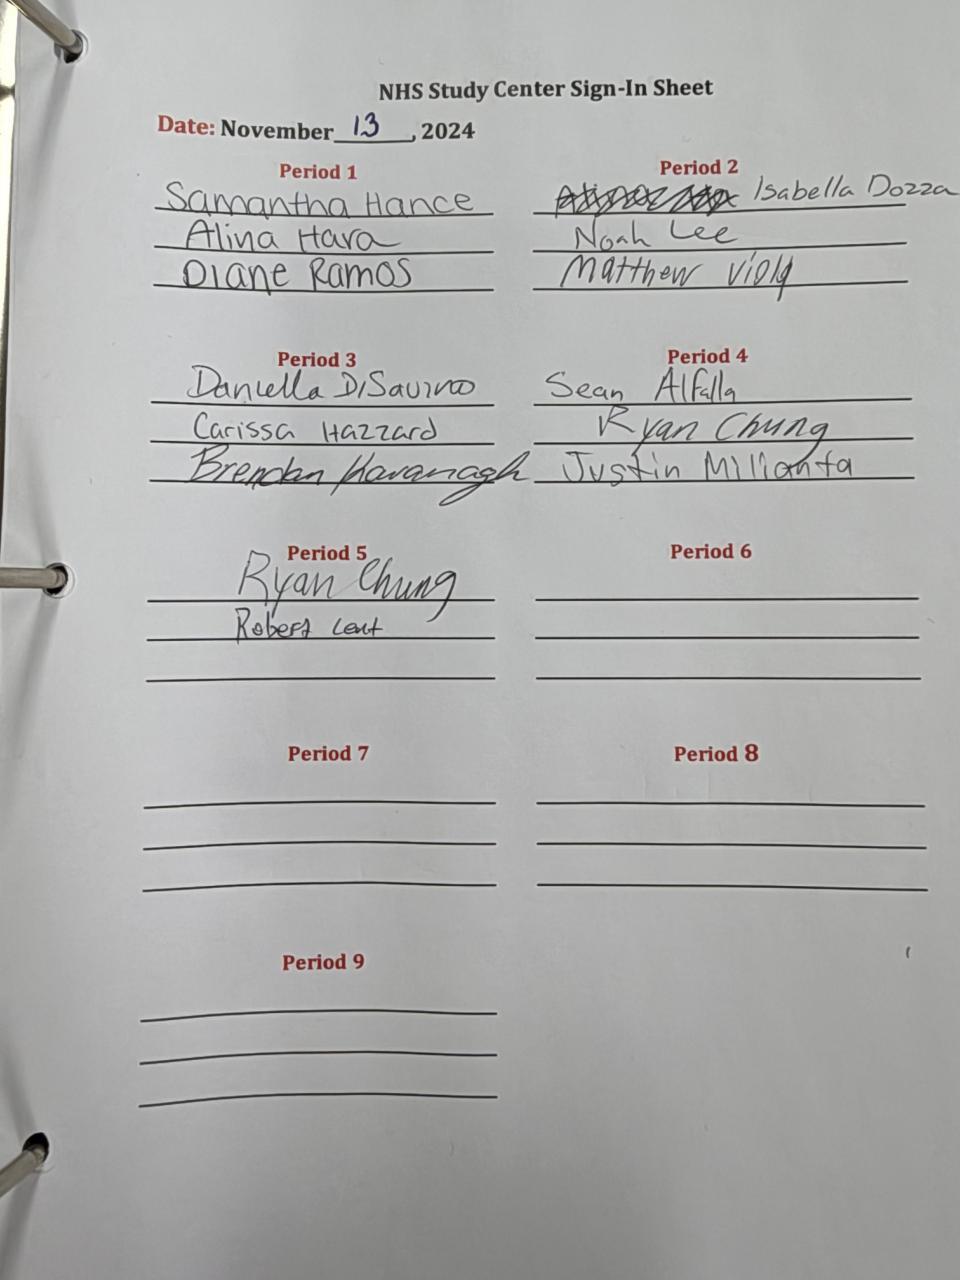 NHS Study Center Sign-In Sheet
Date: November 13, 2024
Period 1
Samantha Hance
Alina Hara
Diane Ramos
Period 2
Isabella Dozza
Noah Lee
Matthew Viola
Period 3
Daniella DiSavino
Carissa Hazzard
Brendan Kavanagh
Period 4
Sean Alfalla
Ryan Chung
Justin Millanta
Period 5
Ryan Chung
Robert Lent
Period 6
Period 7
Period 8
Period 9